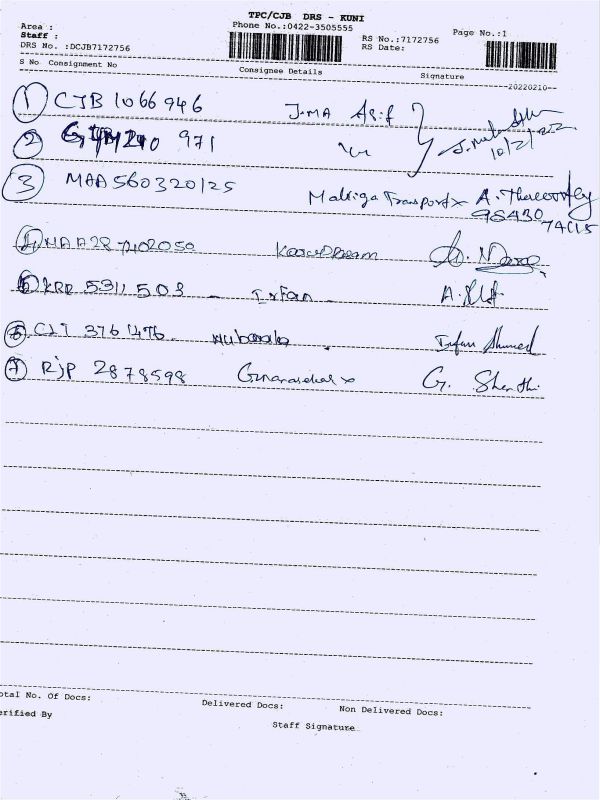 TPC/CJB DRS - KUNI
Area :
Phone No.:0422-3505555
Page No.:1
Staff :
RS No.:7172756
DRS No. :DCJB7172756
RS Date:
S No Consignment No Consignee Details Signature
--20220210--
1 CJB 1066946 J.MA Asif
2 971 10/2/22
3 MAA 560320125 Malliga Transport A.
98430
74015
4 MAA287402050
KRR 5311503 Irfan
CJT 3761476 Mubarak Irfan Ahmed
7 RJP 2878598 Gnanasekar G. Shanthi
otal No. Of Docs: Delivered Docs: Non Delivered Docs:
erified By Staff Signature